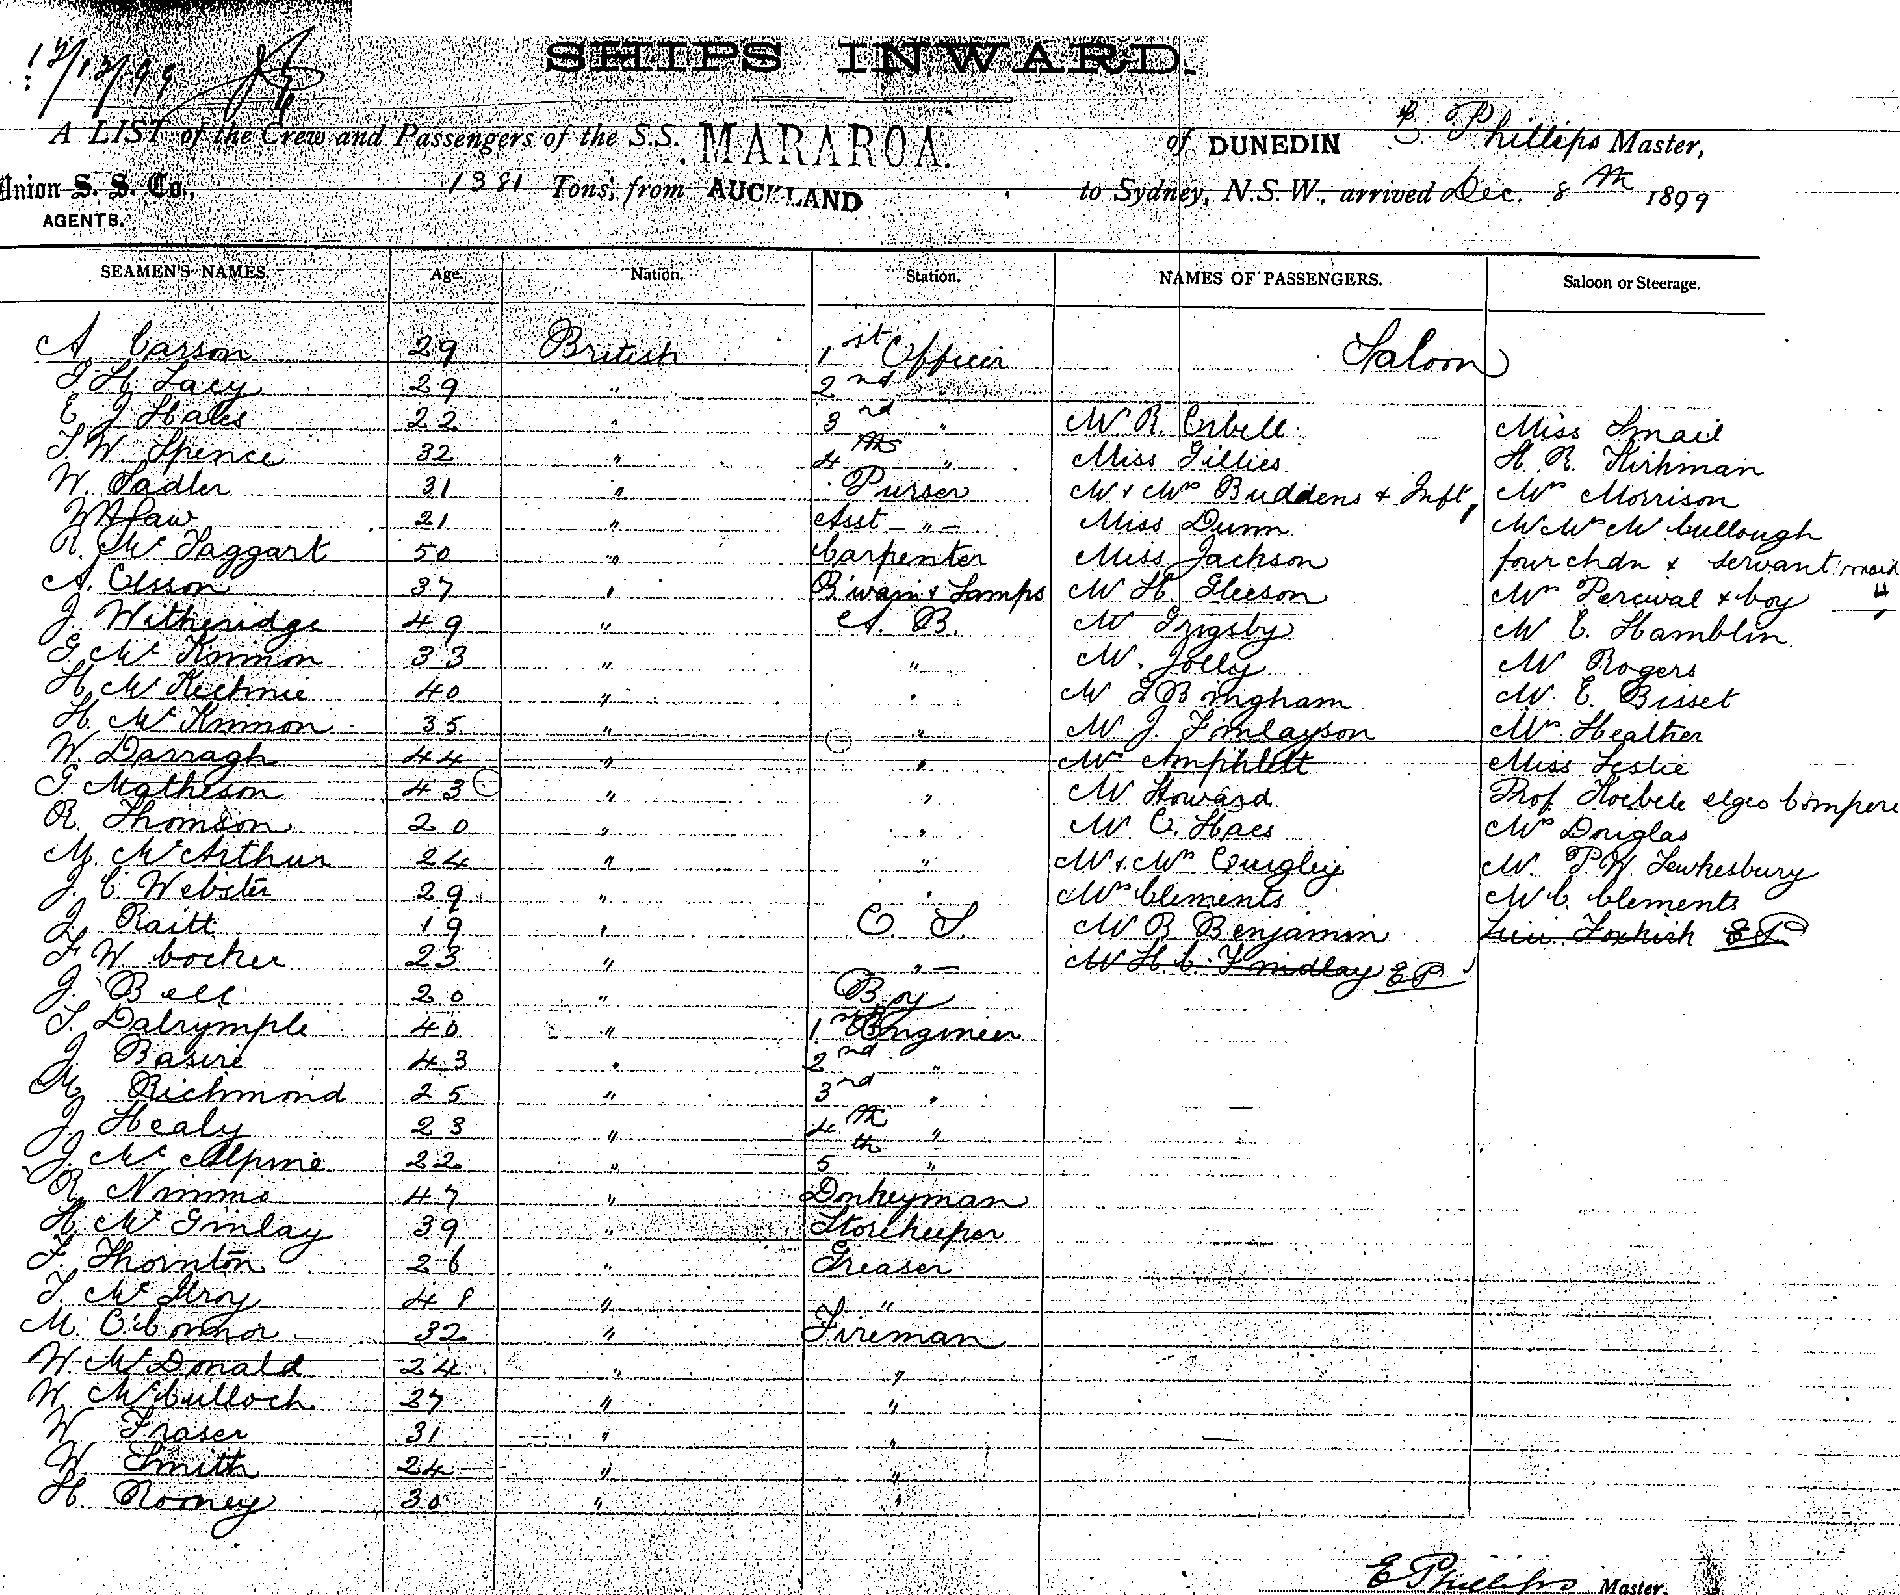 12/12/99
SHIPS INWARD.
A LIST of the Crew and Passengers of the S.S. MARAROA. of DUNEDIN E. Phillips Master,
Union S. S. Co., 1381 Tons, from AUCKLAND to Sydney, N.S.W., arrived Dec. 8th 1899
AGENTS.
SEAMEN'S NAMES. Age. Nation. Station. NAMES OF PASSENGERS. Saloon or Steerage.
A Carson 29 British 1st Officer Saloon
J H Lacy 29 " 2nd "
E J Hales 22 " 3rd " Mr R. Miss Smail
T. W Spence 32 " 4th " Miss Gillies H. R. Kirkman
W. Sadler 31 " Purser Mr & Mrs Buddens & Inft, Mrs Morrison
Shaw 21 " Asst - " - Miss Dunn Mr Mrs McCullough
R. McTaggart 50 " Carpenter Miss Jackson four chdn & servant maid
A. Olsson 37 " B'swain & Lamps Mr H. Gleeson Mrs Percival & boy 4
J. Witheridge 49 " A. B. Mr Grigsby Mr E. Hamblin
G McKinnon 33 " " Mr. Jolly Mr Rogers
H McKechnie 40 " " Mr Bingham Mr. E. Bisset
H. McKinnon 35 " " Mr J. Finlayson Mrs. Heather
W Darragh 44 " " Mrs Amphlett Miss Leslie
G Matheson 43 " " Mr Howard Prof. Koebele Compere
R. Thomson 20 " " Mr C. Haes Mrs Douglas
M. McArthur 24 " " Mr & Mrs Quigley Mr. P W. Tewkesbury
J. C Webster 29 " " Mrs Clements Mr C. Clements
J. Raitt 19 " O. S. Mr B Benjamin EP
F W Cocker 23 " " - Mr H. C. Findlay EP
J. Bell 20 " Boy
T. Dalrymple 40 " 1st Engineer
J Basire 43 " 2nd "
M Richmond 25 " 3rd "
J Healy 23 " 4th "
J McAlpine 22 " 5th "
R. Nimmo 47 " Donkeyman
H. McGinlay 39 " Storekeeper
F. Thornton 26 " Greaser
T. McIlroy 48 " "
M. O'Connor 32 " Fireman
W. McDonald 24 " "
W McCulloch 27 " "
W Fraser 31 " "
W Smith 24 " "
H. Rooney 30 " "
E Phillips Master.